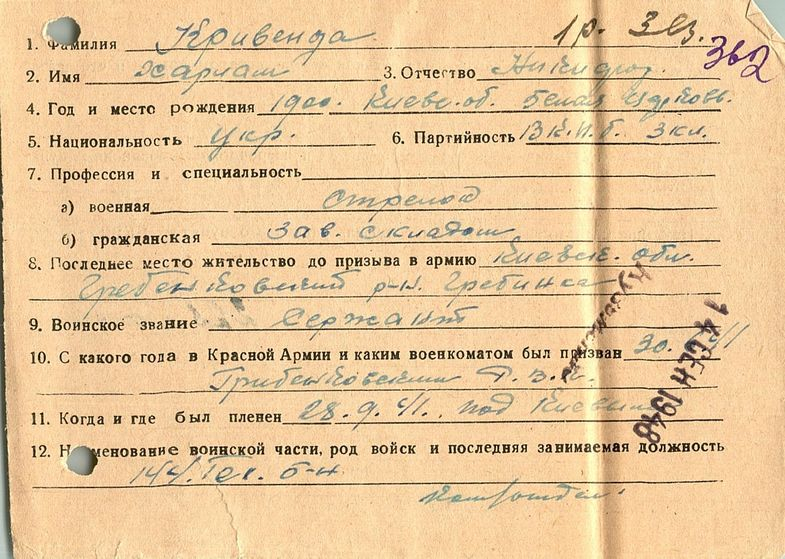 1р. 3 вз.
362
1. Фамилия Кривенда
2. Имя Хариан 3. Отчество Никифор.
4. Год и место рождения 1900. Киевс. об. Белая Церковь.
5. Национальность укр. 6. Партийность В.К.П.б. 3 кл.
7. Профессия и специальность
а) военная стрелок
б) гражданская зав. складом
8. Последнее место жительство до призыва в армию Киевск. обл.
Гребенковский р-н. Гребинка
9. Воинское звание Сержант
10. С какого года в Красной Армии и каким военкоматом был призван 30. 41
Грибенковским Р.В.К.
11. Когда и где был пленен 28.9.41. под Киевом
14 СЕН 1948
12. Наименование воинской части, род войск и последняя занимаемая должность
144. б-н